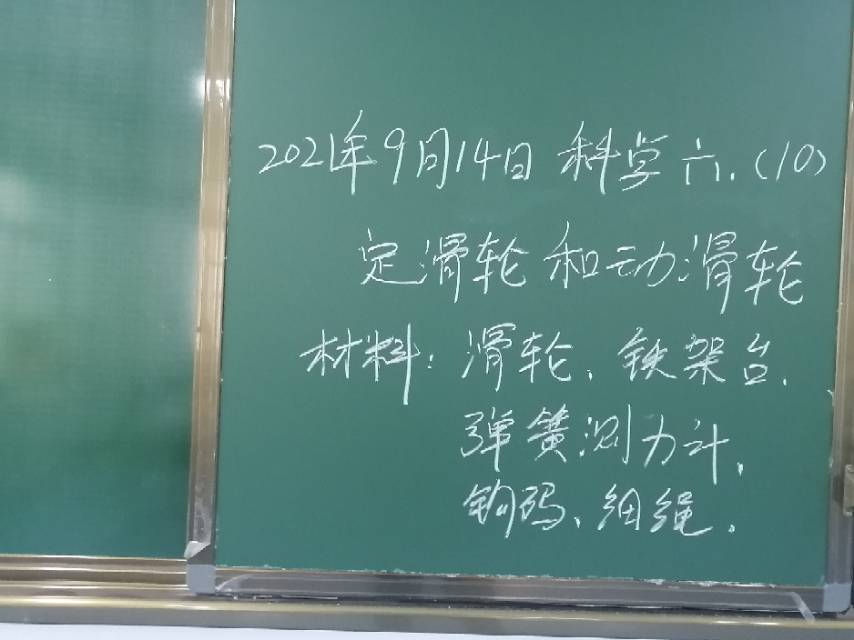 2021年9月14日 科学 六.(10)
定滑轮和动滑轮
材料: 滑轮、铁架台、
弹簧测力计、
钩码、细绳.